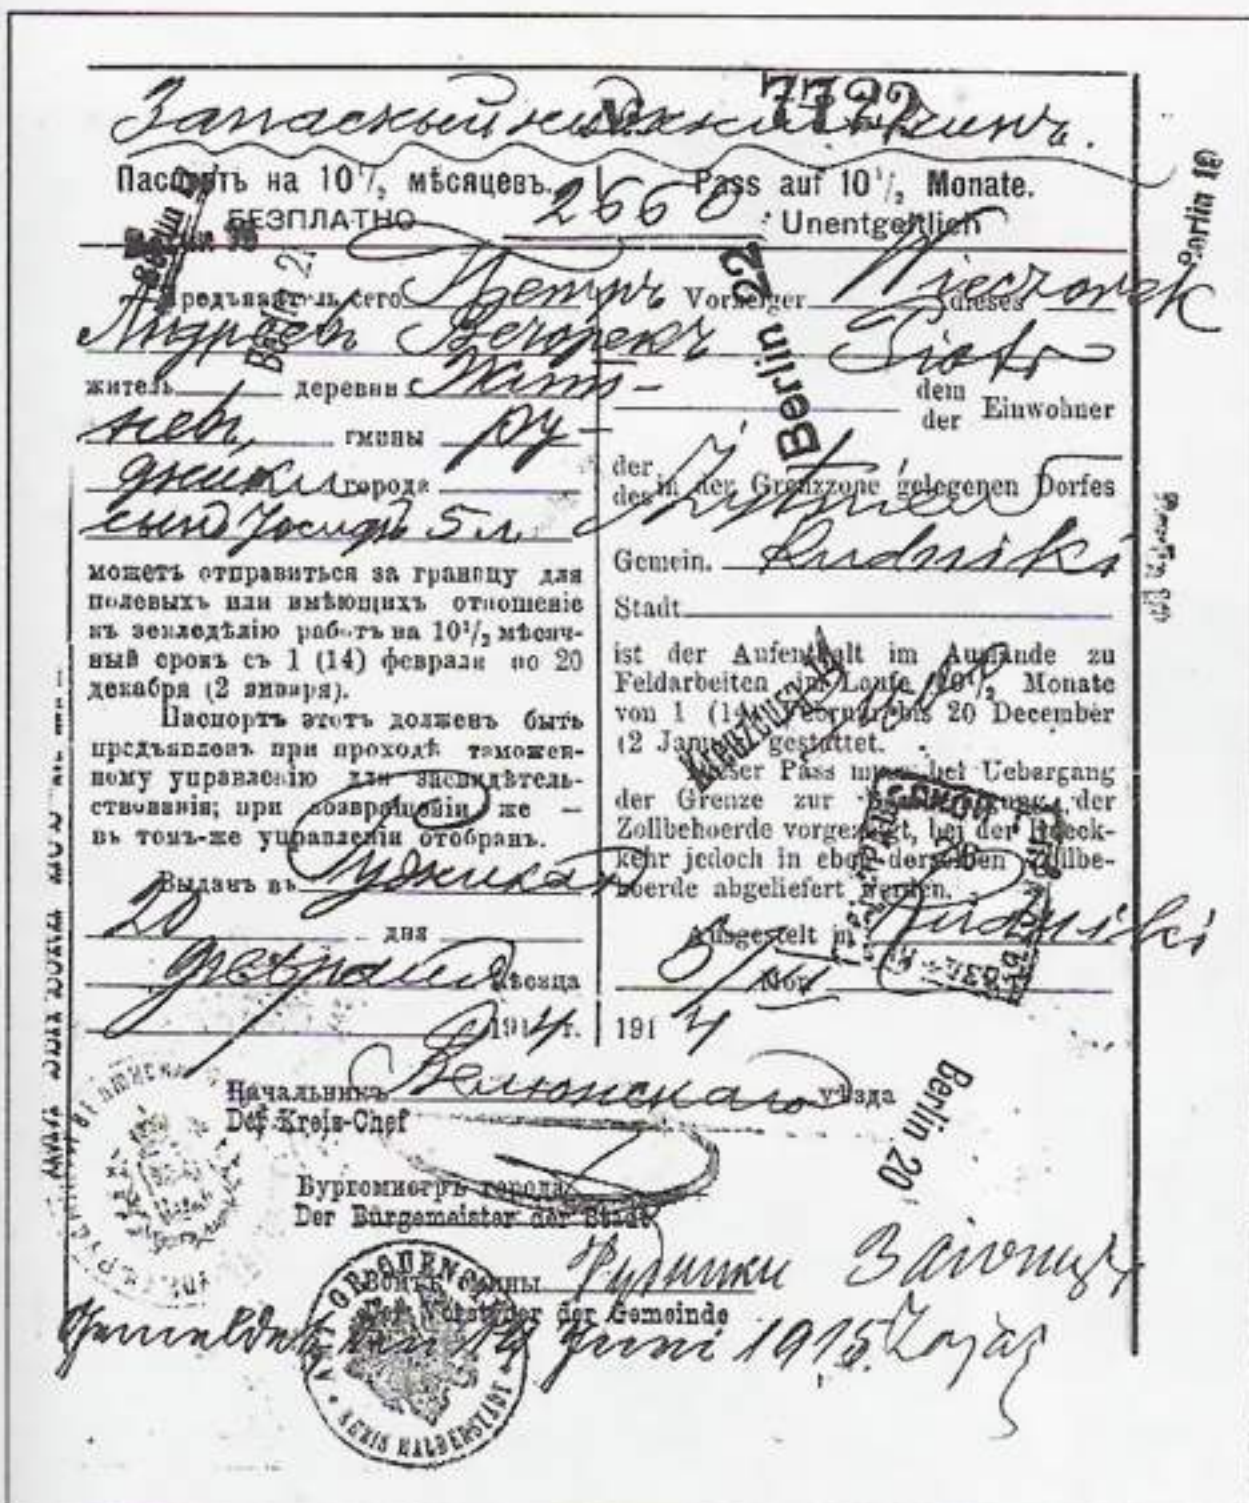 Запасный нижний чинъ.
№ 7722
Паспортъ на 10½ мѣсяцевъ.
БЕЗПЛАТНО
2660
Предъявитель сего Петръ
Андреевъ Вечорекъ
житель деревни Жит-
невъ, гмины Ру-
дники города
сынъ Іосифъ 5 л.
можетъ отправиться за границу для
полевыхъ или имѣющихъ отношеніе
къ земледѣлію работъ на 10½ мѣсяч-
ный срокъ съ 1 (14) февраля по 20
декабря (2 января).
Паспортъ этотъ долженъ быть
предъявленъ при проходѣ таможен-
ному управленію для засвидѣтель-
ствованія; при возвращеніи же —
въ томъ-же управленіи отобранъ.
Выданъ въ Рудникахъ
20 дня
февраля мѣсяца
1914 г.
Pass auf 10½ Monate.
Unentgeltlich
Vorzeiger dieses Wieczorek
Piotr
dem
der Einwohner
der
des in der Grenzzone gelegenen Dorfes
Żytniew
Gemein. Rudniki
Stadt
ist der Aufenthalt im Auslande zu
Feldarbeiten im Laufe 10½ Monate
von 1 (14) Februar bis 20 December
(2 Januar) gestattet.
Dieser Pass muss bei Uebergang
der Grenze zur Bescheinigung der
Zollbehoerde vorgezeigt, bei der Rueck-
kehr jedoch in eben derselben Zollbe-
hoerde abgeliefert werden.
Ausgestelt in Rudniki
Mon
1914
Начальникъ Велюнскаго уѣзда
Der Kreis-Chef
Бургомистръ города
Der Bürgemeister der Stadt
Войтъ гмины Рудники Заіонцъ
Der Vorsteher der Gemeinde
Gemeldet den 14 Juni 1915. Zając
Berlin 22
Berlin 20
Berlin 19
Kreuzburg
AMT GR. QUENSTEDT
KREIS HALBERSTADT